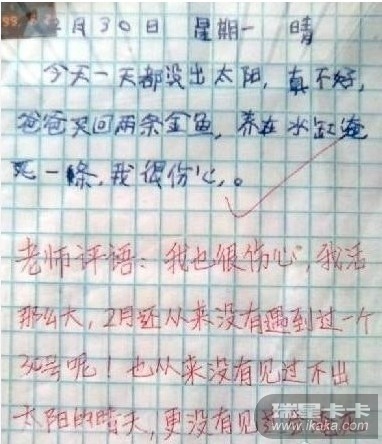 2月30日 星期一 晴
今天一天都没出太阳,真不好,
爸爸买回两条金鱼,养在水缸淹
死一条,我很伤心。
老师评语:我也很伤心,我活
那么大,2月还从来没有遇到过一个
30号呢!也从来没有见过不出
太阳的晴天,更没有见
瑞星卡卡
www.ikaka.com